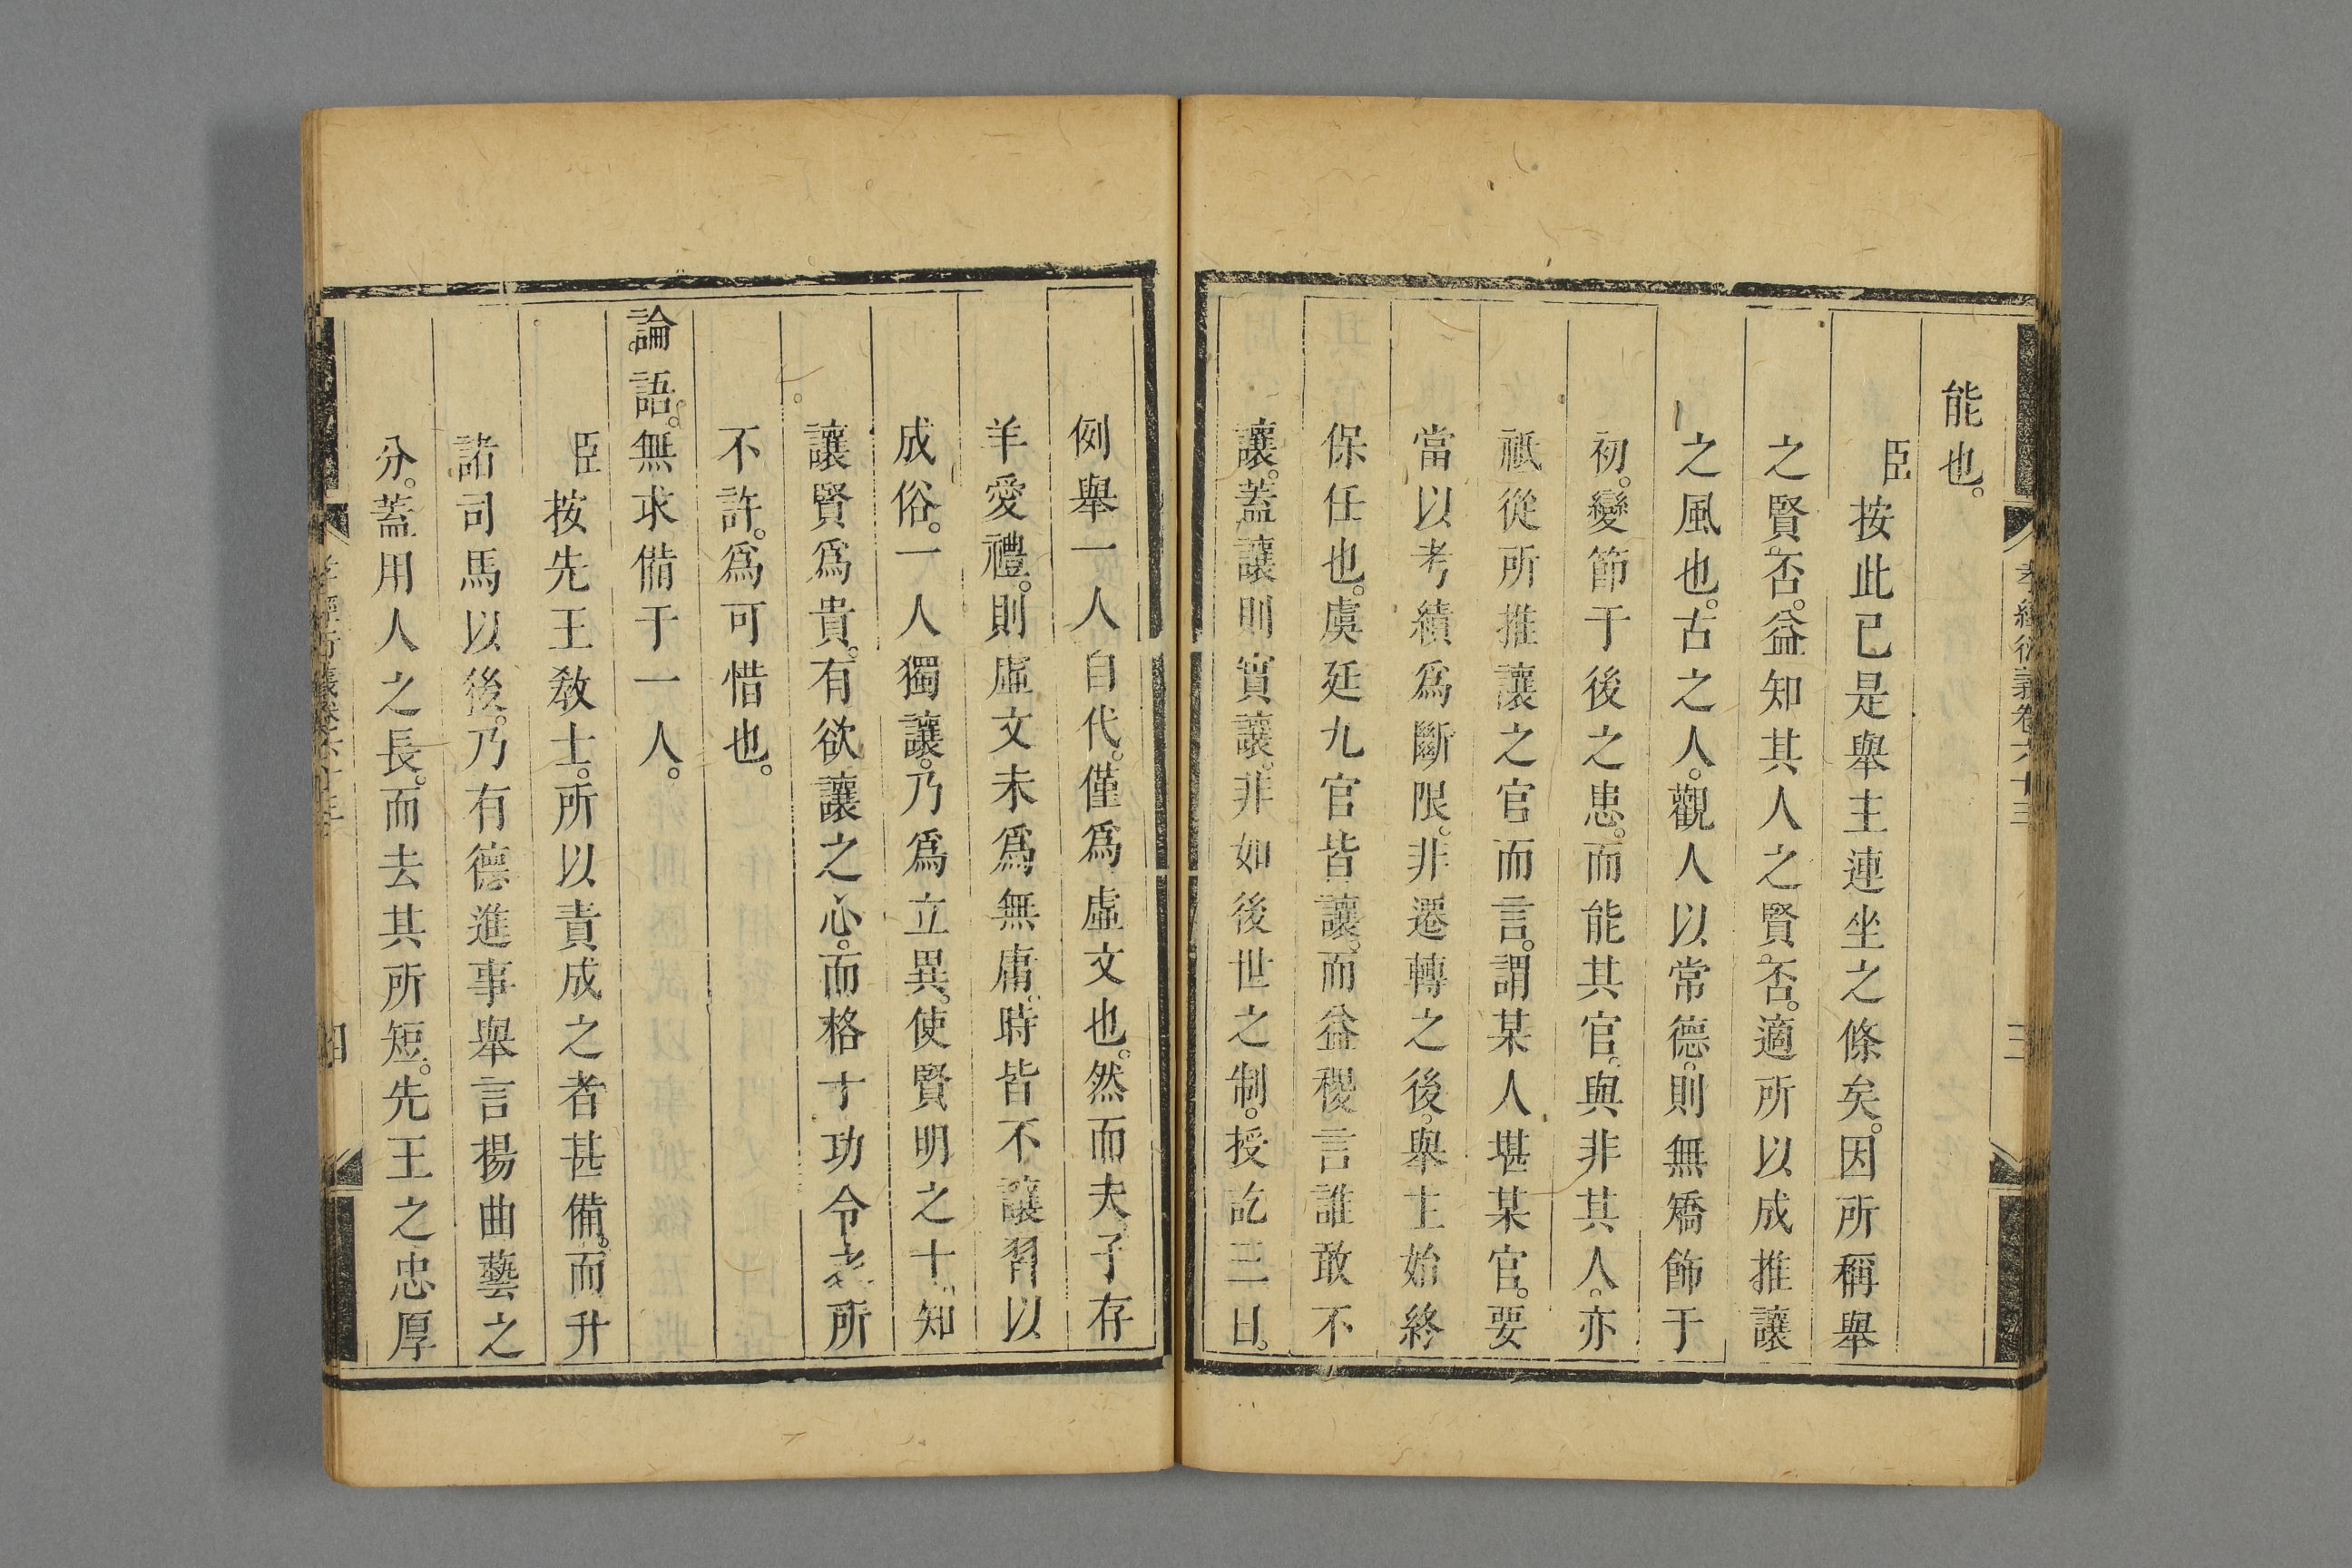 孝經衍義卷六十三
三
能也。
臣按此已是舉主連坐之條矣。因所稱舉
之賢否。益知其人之賢否。適所以成推讓
之風也。古之人。觀人以常德。則無矯飾于
初。變節于後之患。而能其官。與非其人。亦
祇從所推讓之官而言。謂某人堪某官。要
當以考績爲斷限。非遷轉之後。舉主始終
保任也。虞延九官皆讓。而益稷言誰敢不
讓。蓋讓則實讓。非如後世之制。授訖三日。
例舉一人自代。僅爲虛文也。然而夫子存
羊愛禮。則虛文未爲無庸。時皆不讓習以
成俗。一人獨讓。乃爲立異。使賢明之士。知
讓賢爲貴。有欲讓之心。而格于功令者所
不許。爲可惜也。
論語。無求備于一人。
臣按先王敎士。所以責成之者甚備。而升
諸司馬以後。乃有德進事舉言揚曲藝之
分。蓋用人之長。而去其所短。先王之忠厚
孝經衍義卷六十三
四